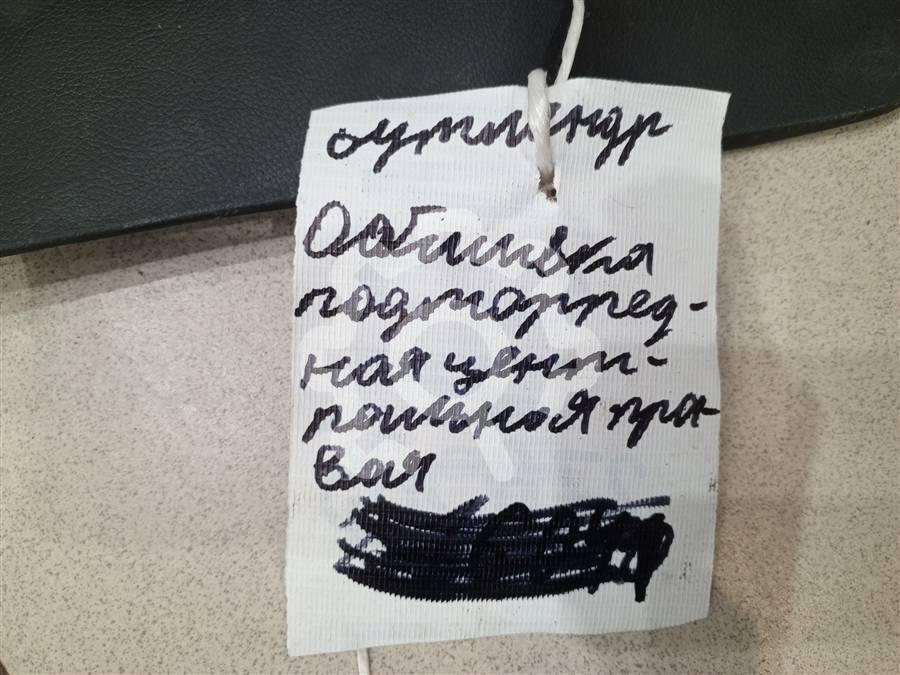 оутлендр
Ообшивка
подторпед-
ная цент-
ральная пра-
вая